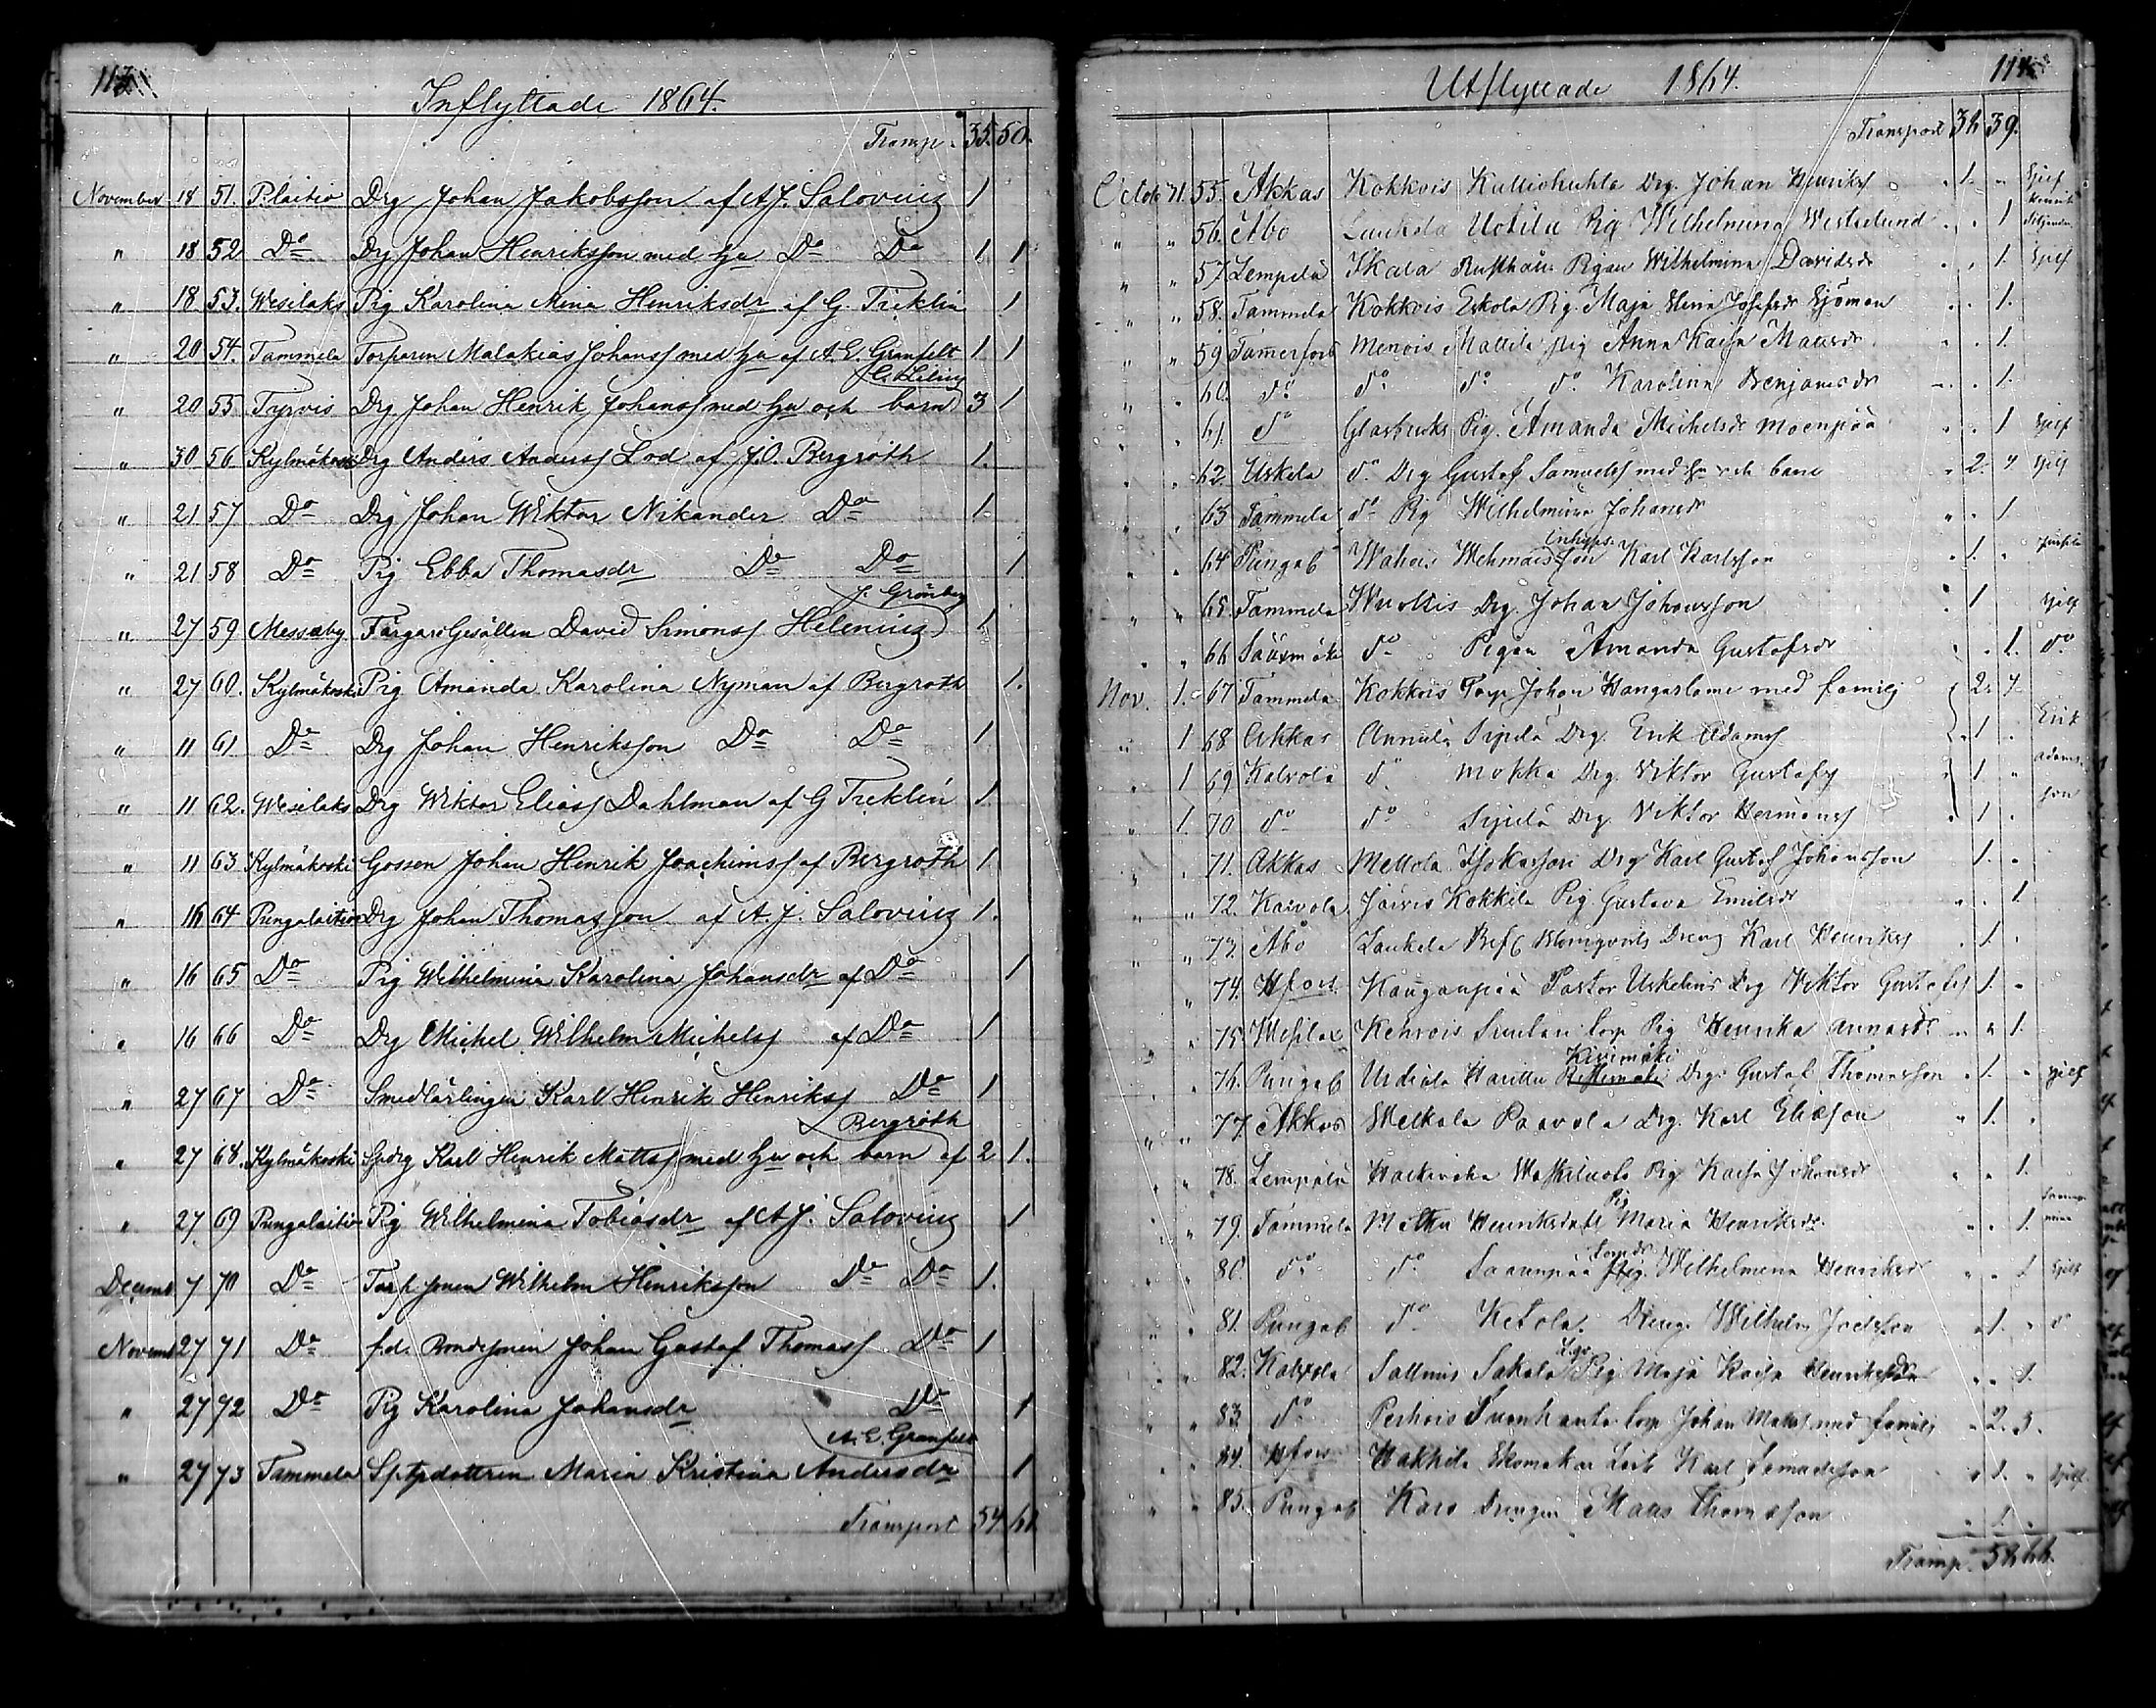 113
Inflyttade 1864.
Transp. 35. 50.
November 18 51. P.laitio Drg Johan Jakobsson af A.J. Salovius 1
" 18 52 Do Drg Johan Henriksson med hu Do Do 1 1
" 18 53. Wesilaks Pig Karolina Mina Henriksdr af G. Tricklin 1
" 20 54. Tammela Torparen Malakias Johanss med hu af A.E. Granfelt 1 1
" 20 55 Tyrvis Drg Johan Henrik Johanss med hu och barn 3 1
" 30 56 Kylmäkoski Drg Anders Anderss Lod af J.O. Bergroth 1.
" 21 57 Do Drg Johan Wiktor Nikander Do 1.
" 21 58 Do Pig Ebba Thomasdr Do Do 1
J. Grönberg
" 27 59 Messuby Färgare Gesällen David Simonss Helenius 1.
" 27 60. Kylmäkoski Pig Amanda Karolina Nyman af Bergroth 1.
" 11 61 Do Drg Johan Henriksson Do Do 1
" 11 62. Wesilaks Drg Wiktor Eliass Dahlman af G Treklin 1.
" 11 63 Kylmäkoski Gossen Johan Henrik Joachimss af Bergroth 1
" 16 64 Pungalaitio Drg Johan Thomasson af A.J. Salovius 1.
" 16 65 Do Pig Wilhelmina Karolina Johansdr af Do 1
" 16 66 Do Drg Michel Wilhelm Michelss af Do 1
" 27 67 Do Smedlärlingen Karl Henrik Henrikss Do 1
Bergroth
" 27 68. Kylmäkoski Spdrg Karl Henrik Mattss med hu och barn af 2 1.
" 27 69 Pungalaitio Pig Wilhelmina Tobiasdr af A.J. Salovius 1
Decemb 7 70 Do Torp sonen Wilhelm Henriksson Do Do 1.
Novemb 27 71 Do f.d. Bondesonen Johan Gustaf Thomass Do 1
" 27 72 Do Pig Karolina Johansdr Do 1
A.E. Granfelt
" 27 73 Tammela Sp.tpdottren Maria Kristina Andersdr 1
Transport 54 61
114
Utflyttade 1864.
Transport 36 39.
Octob 31. 55. Akkas Kokkois Kalliohuhta Drg. Johan Henrikss 1. " Sjelf
" " 56. Åbo Laukela Uotila Pig Wilhelmina Westerlund " 1
" " 57 Lempälä Ikala Rusthåll Pigan Wilhelmina Davidsdr " 1. Sjelf
" " 58. Tammela Kokkois Eskola Pig. Maja Stina Josefsdr Sjöman " 1.
" " 59 Tamerfors Menois Mattila pig Anna Kaisa Mattsdr " 1.
" " 60. do do do do Karolina Benjamsdr " 1.
" " 61. do Glasbruks Pig. Amanda Michelsdr Moenpää " 1 Sjelf
" " 62. Uskela do Drg Gustaf Samuelss med hu och barn 2. 4 Sjelf
" " 63 Tammela do Pig Wilhelmina Johansdr " 1
" " 64 Pungab Wahois Wehmais Inhyss. son Karl Karlsson 1 "
" " 65. Tammela Wuoltis Drg. Johan Johansson 1 Sjelf
" " 66 Sääxmäki do Pigan Amanda Gustafsdr " 1. do
Nov. 1. 67 Tammela Kokkois Torp Johan Hangaslami med familj 2. 4.
" 1 68 Akkas Annila Sipilä Drg. Erik Adamss 1 " Erik Adamsson
" 1 69 Kalvola do Mokka Drg. Viktor Gustafss 1 "
" 1. 70 do do Sipilä Drg Viktor Hermanss 1 "
" " 71. Akkas Mettola Drg Karl Gustaf Johansson 1. "
" " 72. Kalvola Jäivis Kokkila Pig. Gustava Emilsdr " 1.
" " 73. Åbo Laukela Blomqvists Dreng Karl Henrikss 1. "
" " 74. Hfors Kauganpää Pastor Uskelins Drg Viktor Gustafss 1. "
" " 75. Wesilax Kehrois Torp Pig Henrika Annasdr " 1.
" " 76. Pungab Urdiala Haritta Kivimäki Drg. Gustaf Thomasson 1. " Sjelf
" " 77. Akkas Welkala Paavola Drg. Karl Eliasson 1. "
" " 78. Lempälä Pig Kaisa Johansdr " 1.
" " 79. Tammela Pig Maria Henriksdr " 1.
" " 80. do do Saaunpää Wilhelmina Henriksdr " 1 Sjelf
" " 81. Pungab do Ketola Dreng. Wilhelm Joelsson 1. " do
" " 82. Kalvola Sallmis Sakola Pig Maja Kaisa Henriksdr " 1.
" " 83. do Perhois Torp Johan Matts med familj 2. 3.
" " 84. Hfors Hakkila Skomakare Karl Samuelsson 1. " Sjelf
" " 85. Pungab Karo Drengen Maus Thomasson 1.
Transp. 56 66.